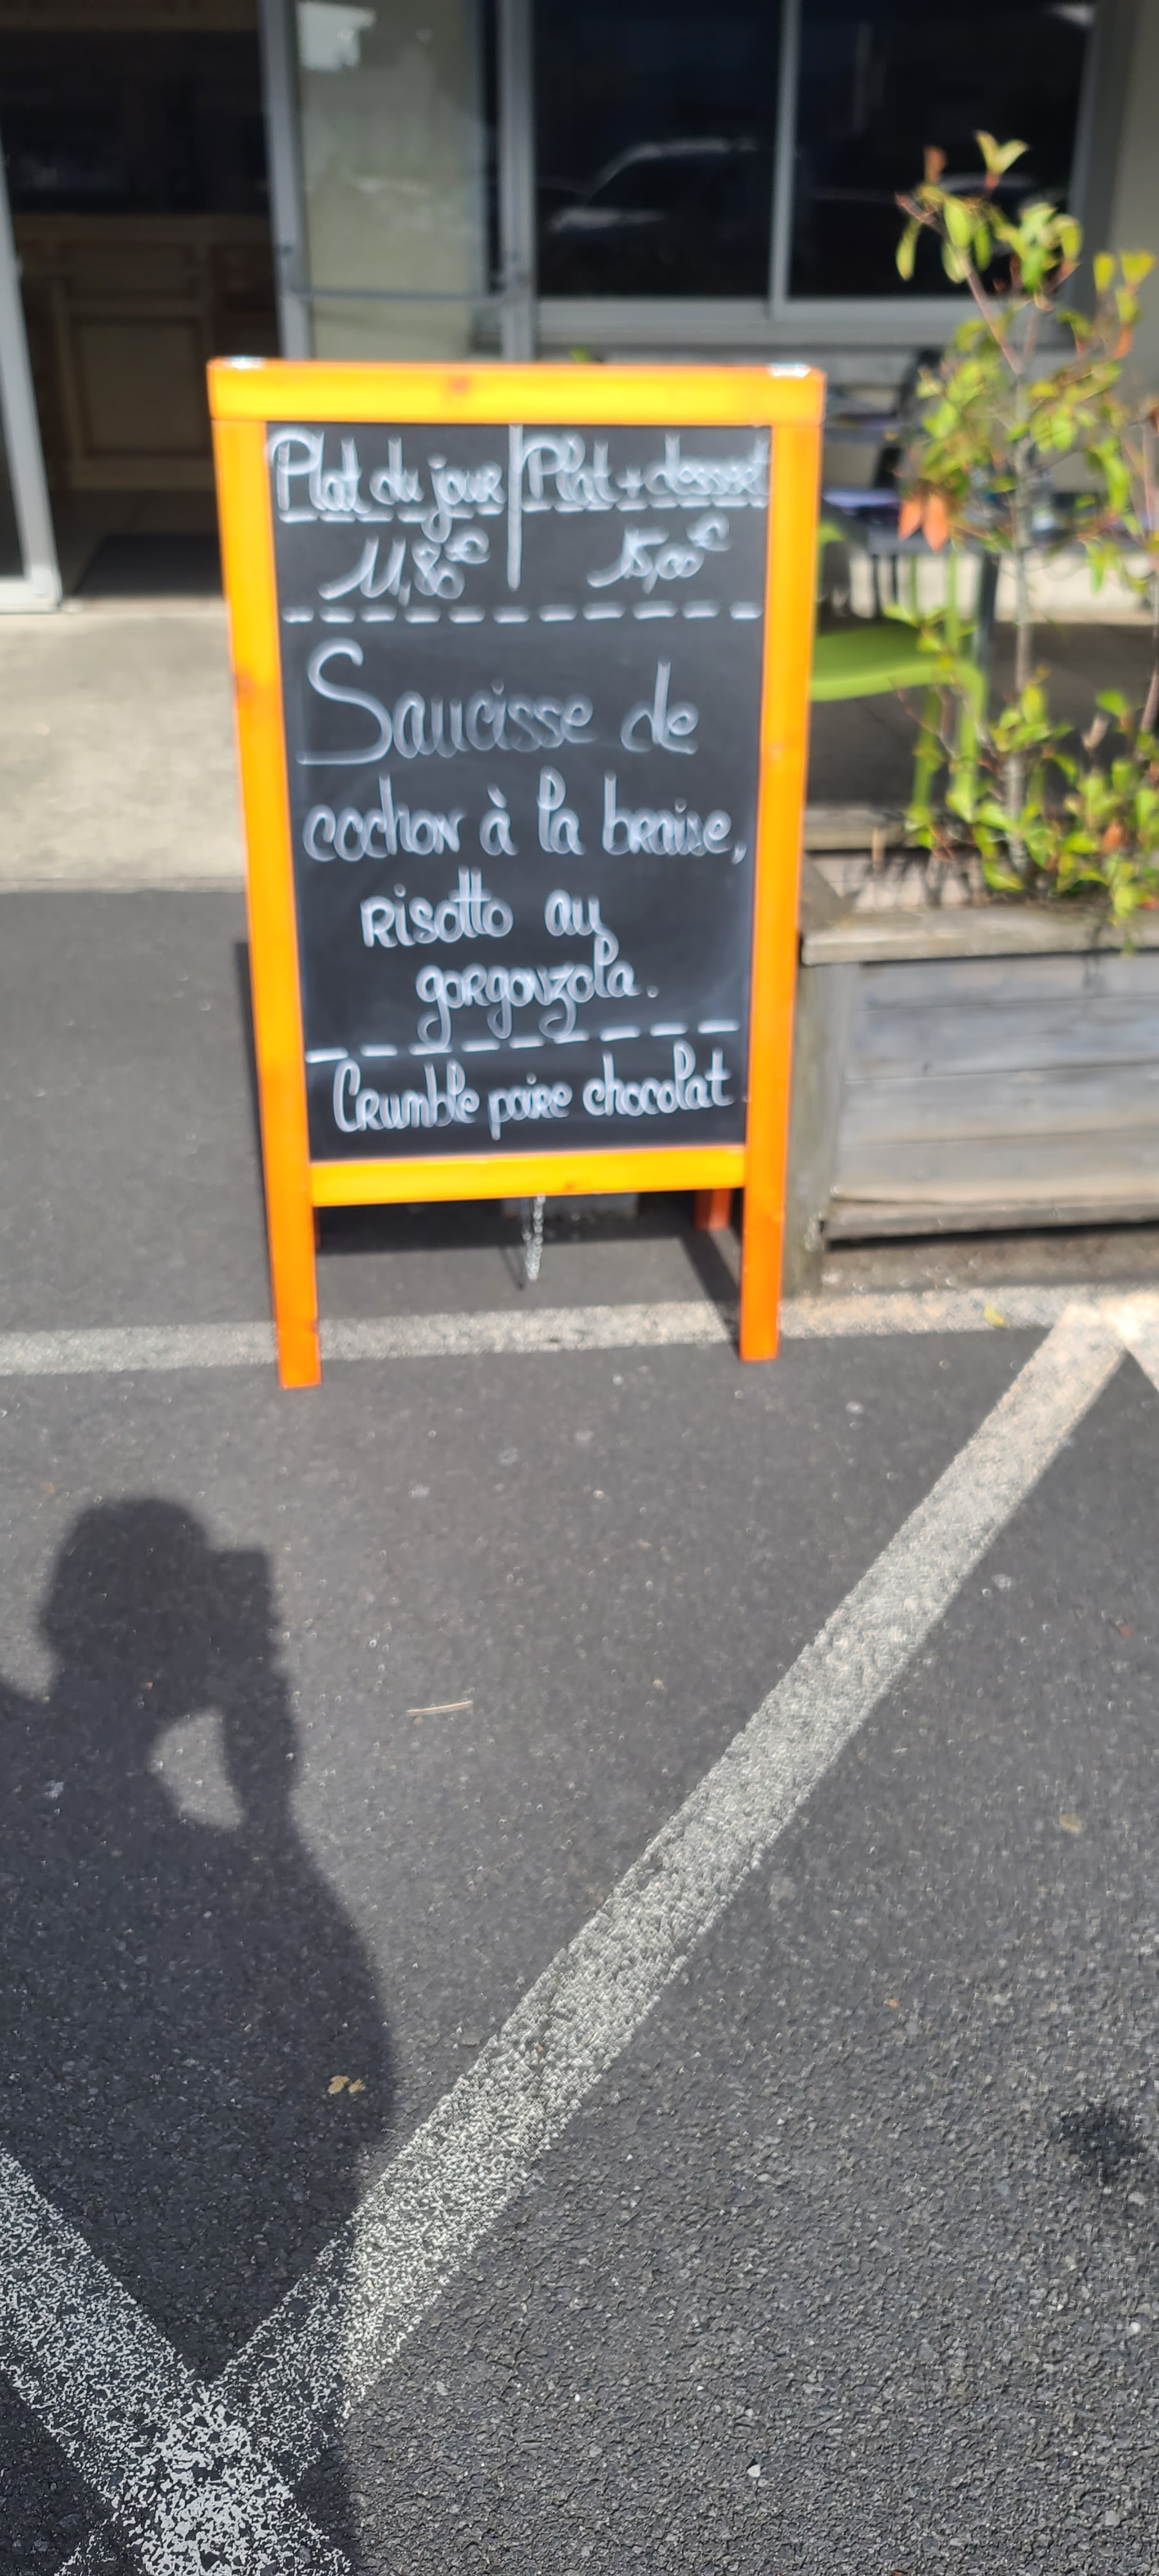 Plat du jour
11,80€
Plat + dessert
15,00€
Saucisse de
cochon à la braise,
risotto au
gorgonzola.
Crumble poire chocolat